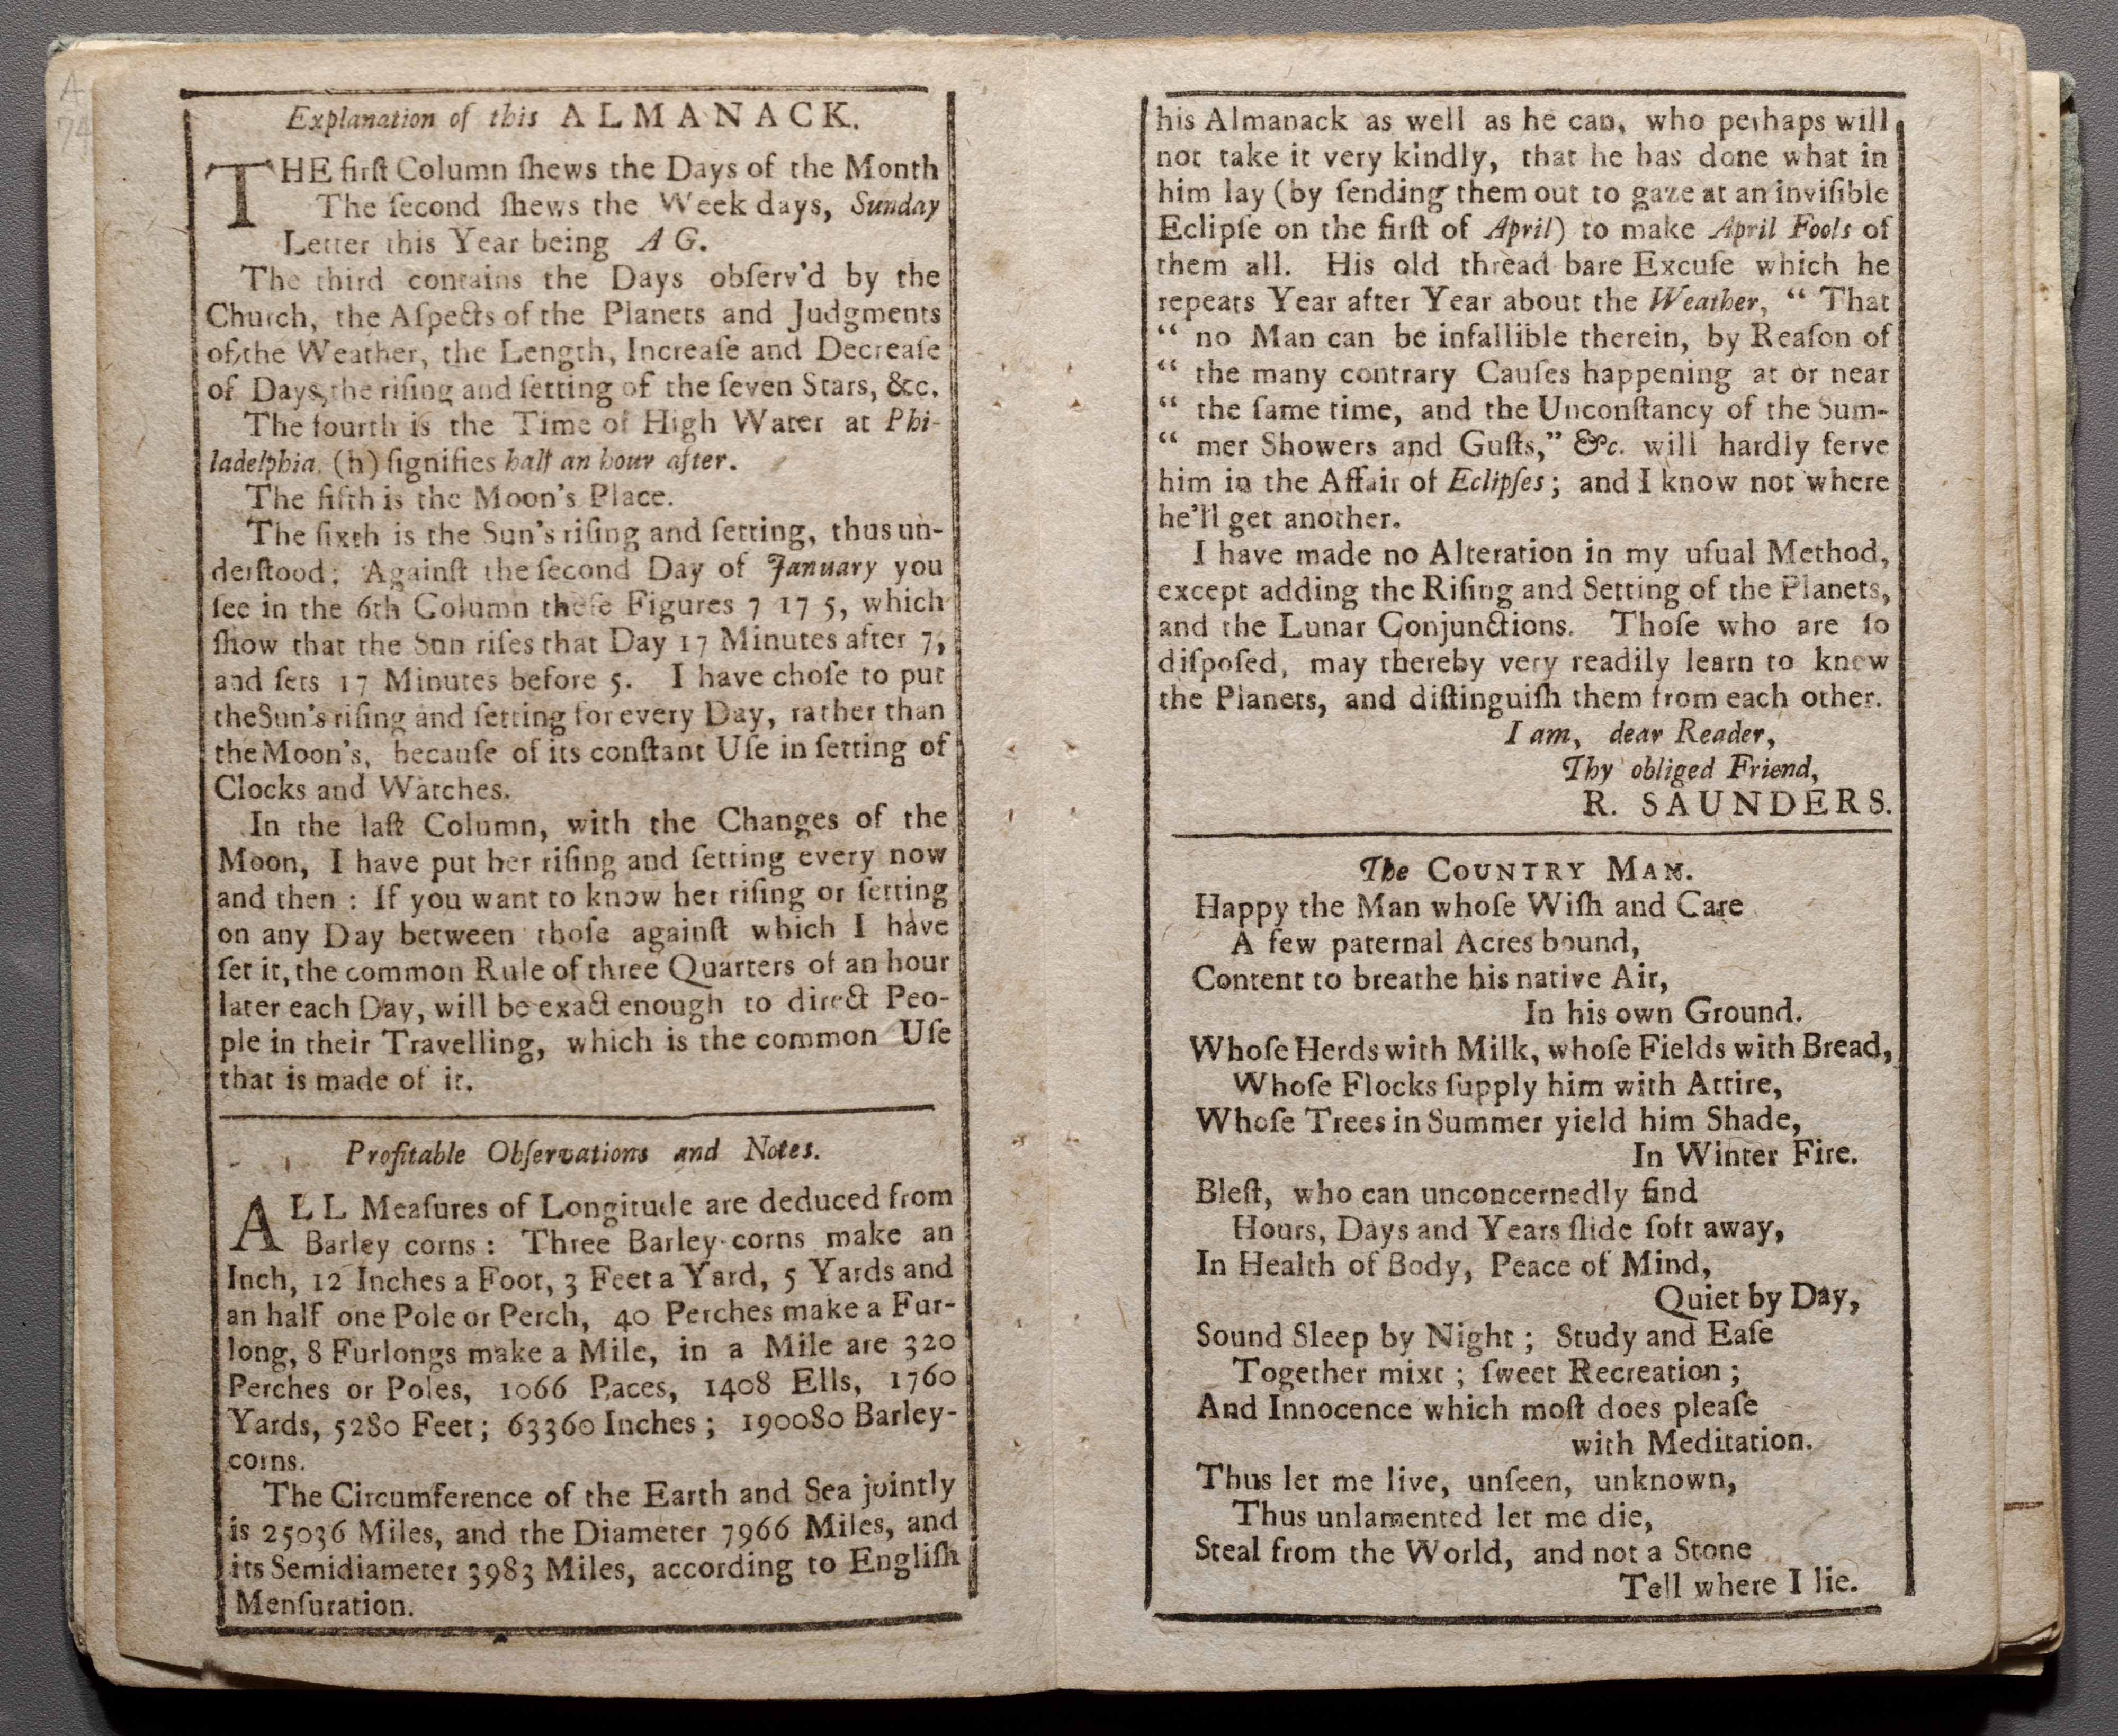 Explanation of this ALMANACK.
THE firſt Column ſhews the Days of the Month
The ſecond ſhews the Week days, Sunday
Letter this Year being A G.
The third contains the Days obſerv'd by the
Church, the Aſpects of the Planets and Judgments
of the Weather, the Length, Increaſe and Decreaſe
of Days, the riſing and ſetting of the ſeven Stars, &c.
The fourth is the Time of High Water at Phi-
ladelphia. (h) ſignifies half an hour after.
The fifth is the Moon's Place.
The ſixth is the Sun's riſing and ſetting, thus un-
derſtood; Againſt the ſecond Day of January you
ſee in the 6th Column theſe Figures 7 17 5, which
ſhow that the Sun riſes that Day 17 Minutes after 7,
and ſets 17 Minutes before 5. I have choſe to put
the Sun's riſing and ſetting for every Day, rather than
the Moon's, becauſe of its conſtant Uſe in ſetting of
Clocks and Watches.
In the laſt Column, with the Changes of the
Moon, I have put her riſing and ſetting every now
and then : If you want to know her riſing or ſetting
on any Day between thoſe againſt which I have
ſet it, the common Rule of three Quarters of an hour
later each Day, will be exact enough to direct Peo-
ple in their Travelling, which is the common Uſe
that is made of it.
Profitable Obſervations and Notes.
ALL Meaſures of Longitude are deduced from
Barley corns : Three Barley-corns make an
Inch, 12 Inches a Foot, 3 Feet a Yard, 5 Yards and
an half one Pole or Perch, 40 Perches make a Fur-
long, 8 Furlongs make a Mile, in a Mile are 320
Perches or Poles, 1066 Paces, 1408 Ells, 1760
Yards, 5280 Feet; 63360 Inches; 190080 Barley-
corns.
The Circumference of the Earth and Sea jointly
is 25036 Miles, and the Diameter 7966 Miles, and
its Semidiameter 3983 Miles, according to Engliſh
Menſuration.
his Almanack as well as he can, who perhaps will
not take it very kindly, that he has done what in
him lay (by ſending them out to gaze at an inviſible
Eclipſe on the firſt of April) to make April Fools of
them all. His old thread-bare Excuſe which he
repeats Year after Year about the Weather, “ That
“ no Man can be infallible therein, by Reaſon of
“ the many contrary Cauſes happening at or near
“ the ſame time, and the Unconſtancy of the Sum-
“ mer Showers and Guſts,” &c. will hardly ſerve
him in the Affair of Eclipſes; and I know not where
he'll get another.
I have made no Alteration in my uſual Method,
except adding the Riſing and Setting of the Planets,
and the Lunar Conjunctions. Thoſe who are ſo
diſpoſed, may thereby very readily learn to know
the Planets, and diſtinguiſh them from each other.
I am, dear Reader,
Thy obliged Friend,
R. SAUNDERS.
The COUNTRY MAN.
Happy the Man whoſe Wiſh and Care
A few paternal Acres bound,
Content to breathe his native Air,
In his own Ground.
Whoſe Herds with Milk, whoſe Fields with Bread,
Whoſe Flocks ſupply him with Attire,
Whoſe Trees in Summer yield him Shade,
In Winter Fire.
Bleſt, who can unconcernedly find
Hours, Days and Years ſlide ſoft away,
In Health of Body, Peace of Mind,
Quiet by Day,
Sound Sleep by Night ; Study and Eaſe
Together mixt ; ſweet Recreation ;
And Innocence which moſt does pleaſe
with Meditation.
Thus let me live, unſeen, unknown,
Thus unlamented let me die,
Steal from the World, and not a Stone
Tell where I lie.